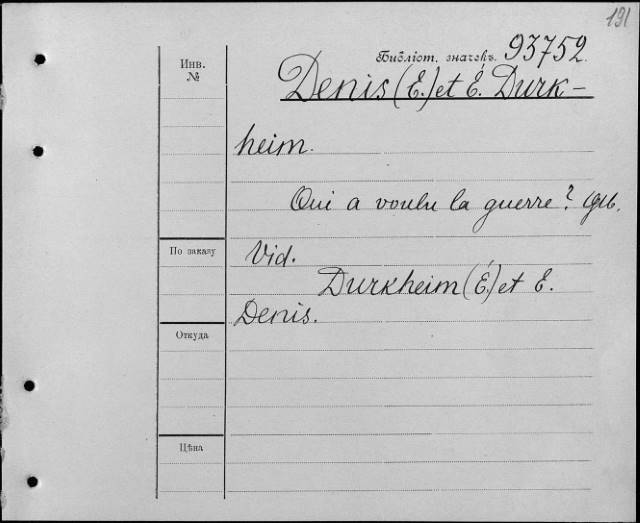 191
Инв.
№
Библіот. значекъ. 93752.
Denis (E.) et É. Durk-
heim.
Qui a voulu la guerre? 1916.
По заказу
Vid.
Durkheim (É.) et E.
Denis.
Откуда
Цѣна